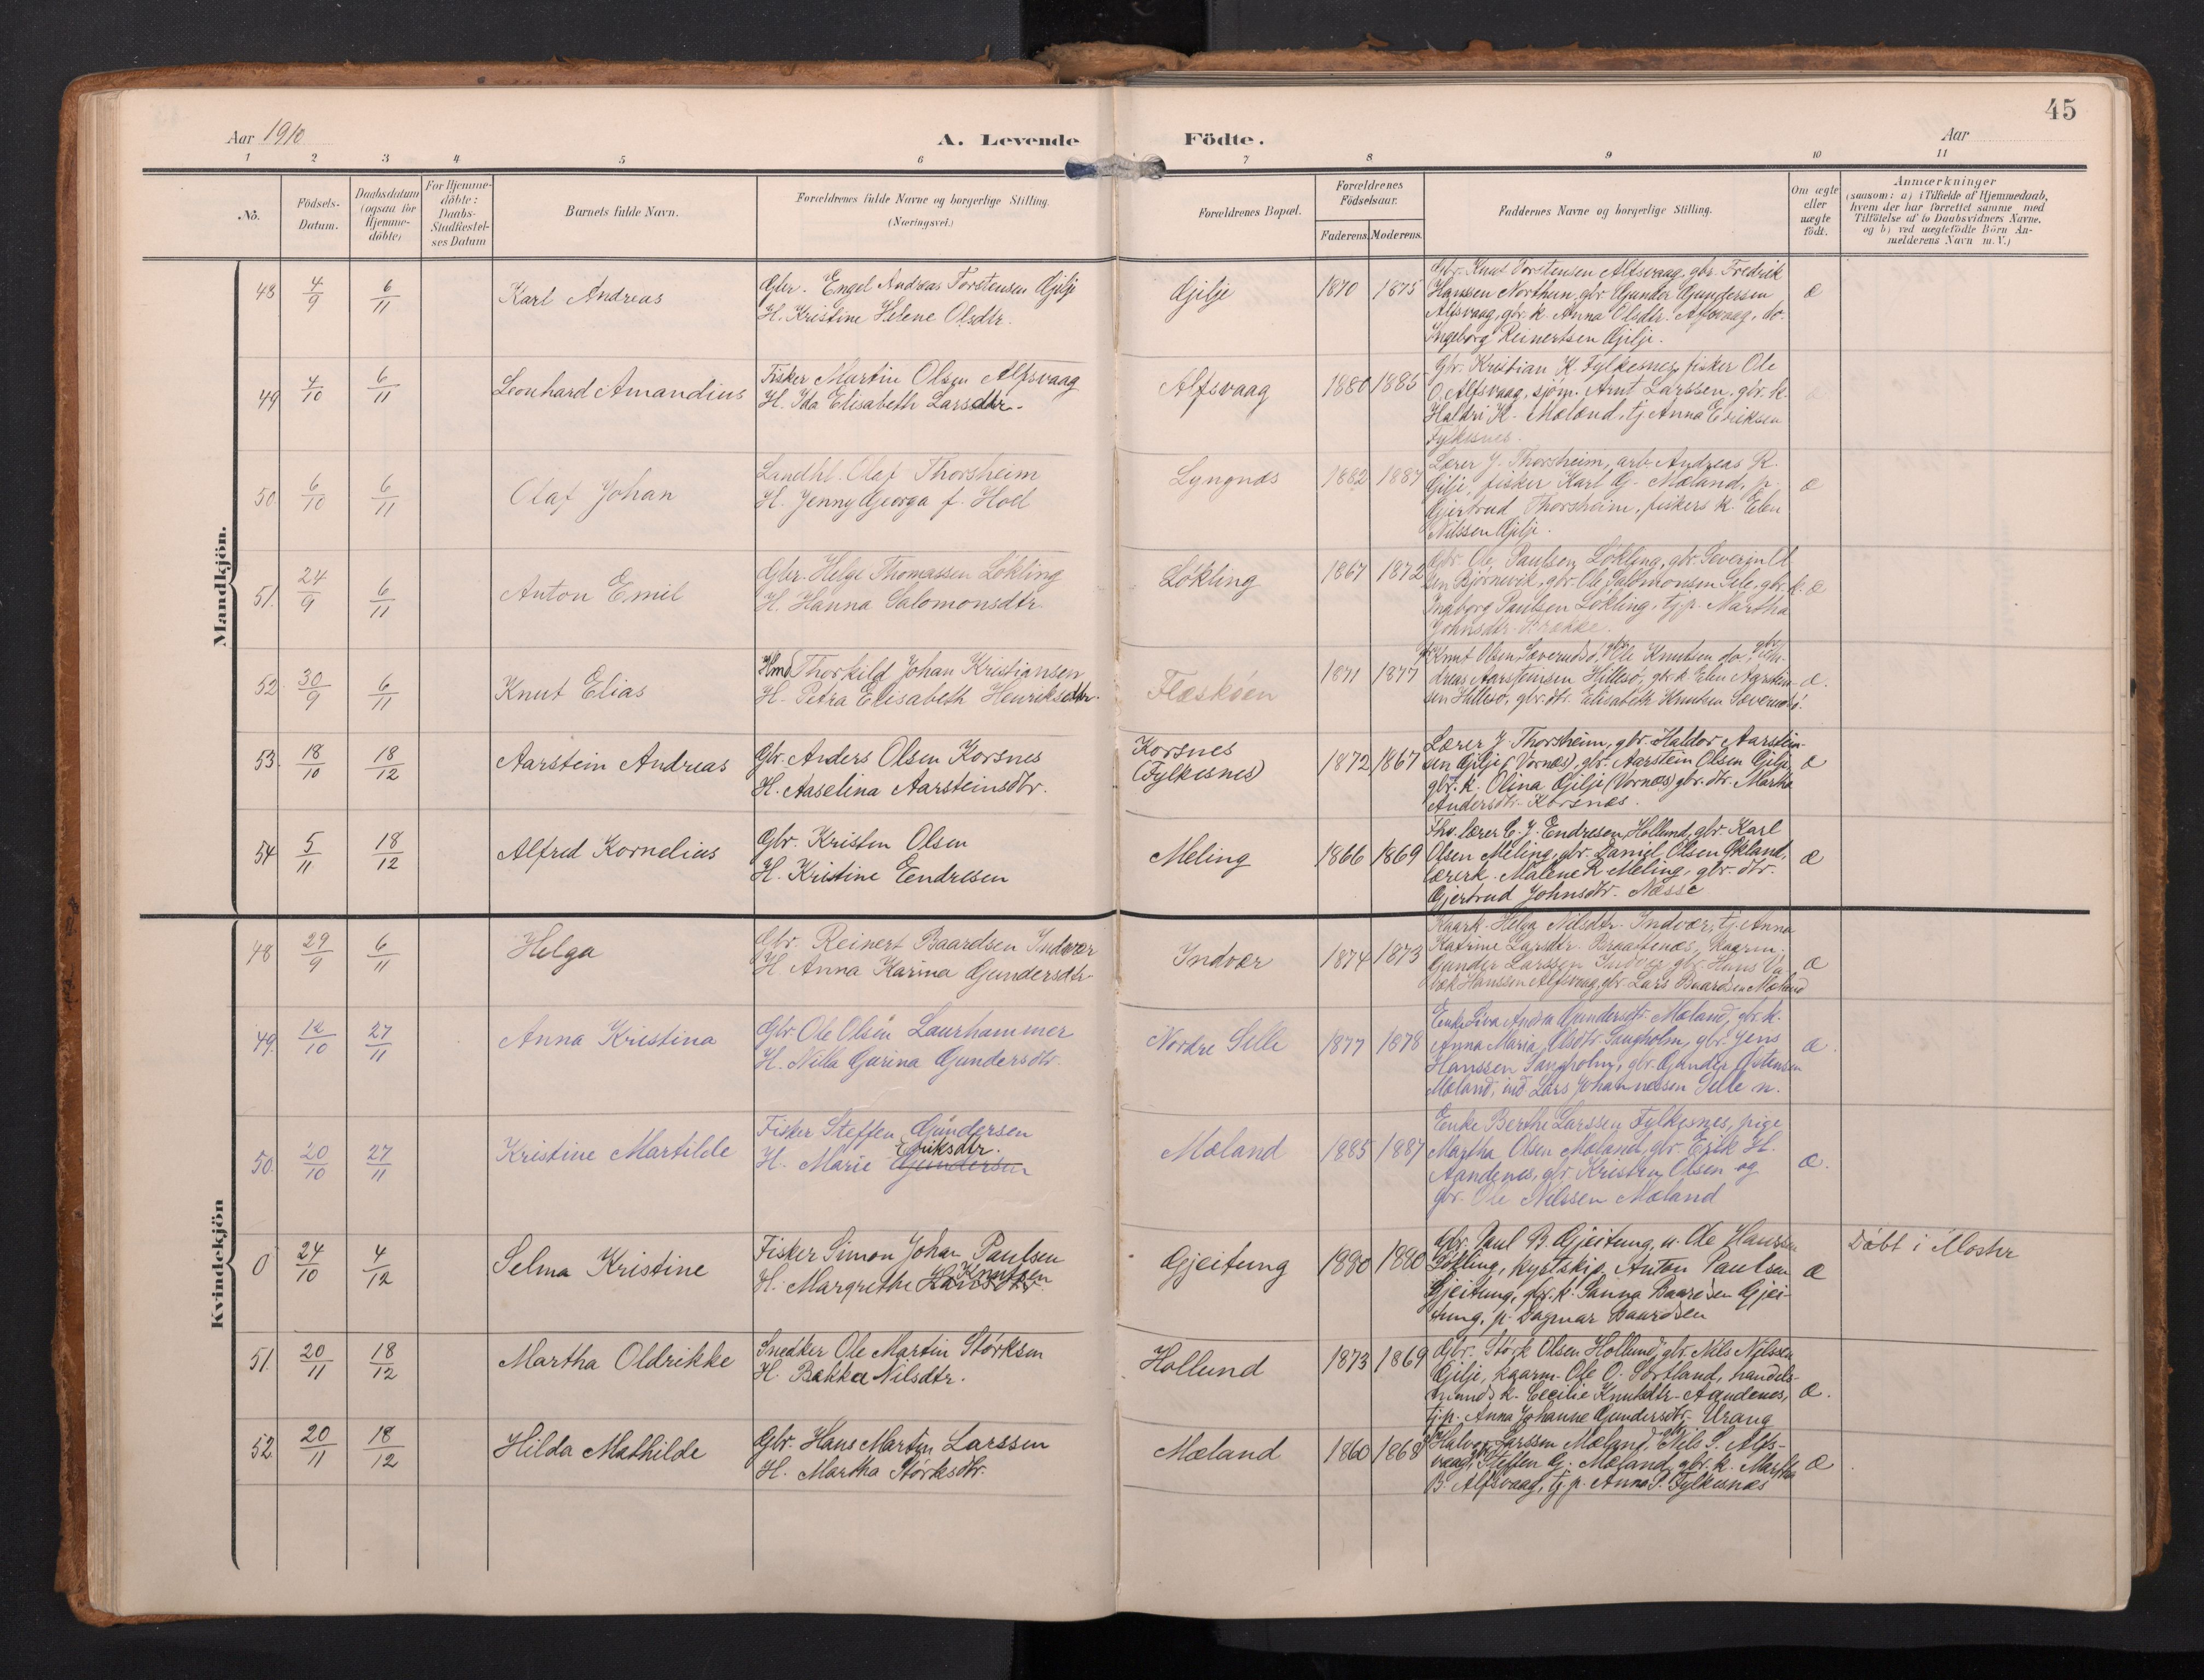 45
Aar 1910
A. Levende Födte.
Aar
1 2 3 4 5 6 7 8 9 10 11
No.
Födsels-
Datum.
Daabsdatum
(ogsaa for
Hjemme-
döbte)
For Hjemme-
döbte:
Daabs-
Stadfæstel-
ses Datum
Barnets fulde Navn.
Forældrenes fulde Navne og borgerlige Stilling.
(Næringsvei.)
Forældrenes Bopæl.
Forældrenes
Födselsaar.
Faderens. Moderens.
Faddernes Navne og borgerlige Stilling.
Om ægte
eller
uægte
födt.
Anmærkninger
(saasom: a) i Tilfælde af Hjemmedaab,
hvem der har forrettet samme med
Tilföielse af to Daabsvidners Navne,
og b) ved uægtefödte Börn An-
melderens Navn m. V.)
Mandkjön.
48 4/9 6/11
Karl Andreas
Gbr. Engel Andreas Torstensen Gjilje
H. Kristine Helene Olsdtr.
Gjilje
1870 1875
Gbr. Knut Torstensen Alfsvaag, gbr. Fredrik
Hanssen Northun, gbr. Gunder Gundersen
Alfsvaag, gbr. k. Anna Olsdtr. Alfsvaag, do.
Ingeborg Reinertsen Gjilje.
æ
49 4/10 6/11
Leonhard Amandius
Fisker Martin Olsen Alfsvaag
H. Ida Elisabeth Larsdtr.
Alfsvaag
1880 1885
Gbr. Kristian K. Fylkesnes, fisker Ole
O. Alfsvaag, sjøm. Arnt Larssen, gbr. k.
K. Mæland, tj. Anna Eriksen
Fylkesnes.
50 6/10 6/11
Olaf Johan
Landhl. Olaf Thorsheim
H. Jenny Georga f. Holl
Lyngnæs
1882 1887
Lærer J. Thorsheim, arb. Andreas R.
Gilje, fisker Karl G. Mæland, p.
Gjertrud Thorsheim, fiskers k. Elen
Nilssen Gjilje.
æ
51. 24/9 6/11
Anton Emil
Gbr. Helge Thomassen Løkling
H. Hanna Salomonsdtr.
Løkling
1867 1872
Gbr. Ole Paulsen Løkling, gbr. Severin Ol-
sen Bjørnevik, gbr. Ole Salomonsen Sele, gbr. k.
Ingborg Paulsen Løkling, tj.p. Martha
Johnsdtr.
æ
52. 30/9 6/11
Knut Elias
Hmd. Thorkild Johan Kristiansen
H. Petra Elisabeth Henriksdtr.
Flæskøen
1871 1877
Knut Olsen Sæverudsø, gbr. Ole Knutsen do, gbr. An-
dreas Aarsteinsen Hillesø, gbr. k. Elen Aarstein-
sen Hillesø, gbr. dtr. Elisabeth Knutsen Sæverudsø.
æ.
53. 18/10 18/12
Aarstein Andreas
Gbr. Anders Olsen Korsnes
H. Aaselina Aarsteinsdtr.
Korsnes
(Fylkesnes)
1872 1867
Lærer J. Thorsheim, gbr. Haldor Aarstein-
sen Gjilje (Vornæs), gbr. Aarstein Olsen Gilje,
gbr. k. Olina Gjilje (Vornæs) gbr. dtr. Martha
Andersdtr. Korsnæs.
æ
54 5/11 18/12
Alfred Kornelius
Gbr. Kristen Olsen
H. Kristine Eendresen
Meling
1866 1869
Fhv. lærer E. J. Endresen, Hollund, gbr. Karl
Olsen Meling, gbr. Daniel Olsen Økland,
lærerk. Malene R. Meling, gbr. dtr.
Gjertrud Johnsdtr. Næsse
æ
Kvindekjön
48 29/9 6/11
Helga
Gbr. Reinert Baardsen Indvær
H. Anna Karina Gundersdtr.
Indvær
1874 1873
Helga Nilsdtr. Indvær, tj. Anna
Katrine Larsdtr. kaarm.
Gunder Larssen Indvær, gbr. Hans
Hanssen Alfsvaag, gbr. Lars Baardsen Mæland
æ
49. 12/10 27/11
Anna Kristina
Gbr. Ole Olsen Laurhammer
H. Nilla Gurina Gundersdtr.
Nordre Selle
1877 1878
Enke Siva Andrea Gundersdtr. Mæland, gbr. k.
Anna Maria Olsdtr. Sangholm, gbr. Jens
Hanssen Sangholm, gbr. Gunder Østensen
Mæland, ind. Lars Johannessen Selle n.
æ.
50. 20/10 27/11
Kristine Martilde
Fisker Steffen Gundersen
Eriksdtr.
H. Marie Gundersen
Mæland
1885 1887
Enke Berthe Larssen Fylkesnes, pige
Martha Olsen Mæland, gbr. Erik H.
Aandenes, gbr. Kristen Olsen og
gbr. Ole Nilssen Mæland
æ.
0 24/10 4/12
Selma Kristine
Fisker Simon Johan Paulsen
Knutsen
H. Margrethe
Gjeitung
1880 1880
Gbr. Paul B. Gjeitung, u. Ole Hanssen
Løkling, kystskip. Anton Paulsen
Gjeitung, gbr. k. Sanna Baardsen Gjei-
tung, p. Dagmar Baardsen
æ
Døbt i Moster
51. 20/11 18/12
Martha Oldrikke
Snedker Ole Martin Størksen
H. Bakka Nilsdtr.
Hollund
1873 1869
Gbr. Størk Olsen Hollund, gbr. Nils Nilssen
Gjilje, kaarm. Ole O. Sørtland, handels-
mands k. Cecilie Knutsdtr. Aandenes,
tj.p. Anna Johanne Gundersdtr. Urang
æ.
52. 20/11 18/12
Hilda Mathilde
Gbr. Hans Martin Larssen
H. Martha Størksdtr.
Mæland
1860 1868
Halvor Larssen Mæland, Nils S. Alfs-
vaag, Steffen G. Mæland, gbr. k. Martha
B. Alfsvaag, tj. p. Anna S. Fylkesnæs
æ